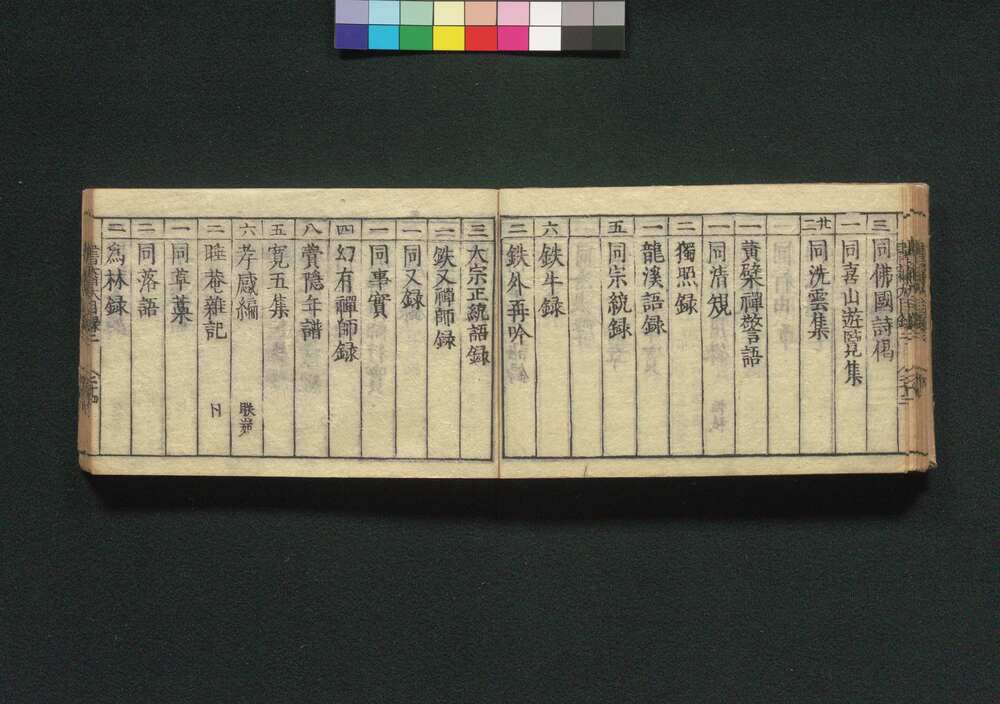 三 同佛國詩偈
一 同喜山遊覽集
廿二 同洗雲集
一 黄檗禪警語
一 同清規
二 獨照録
一 龍溪語録
五 同宗統録
六 鉄牛録
二 鉄外再吟
三 大宗正統語録
二 鉄叉禪師録
一 同又録
一 同事實
四 幻有禪師録
八 費隱年譜
五 寛五集
六 孝感編
二 睡菴雜記
一 同草藁
二 同落語
二 為林録